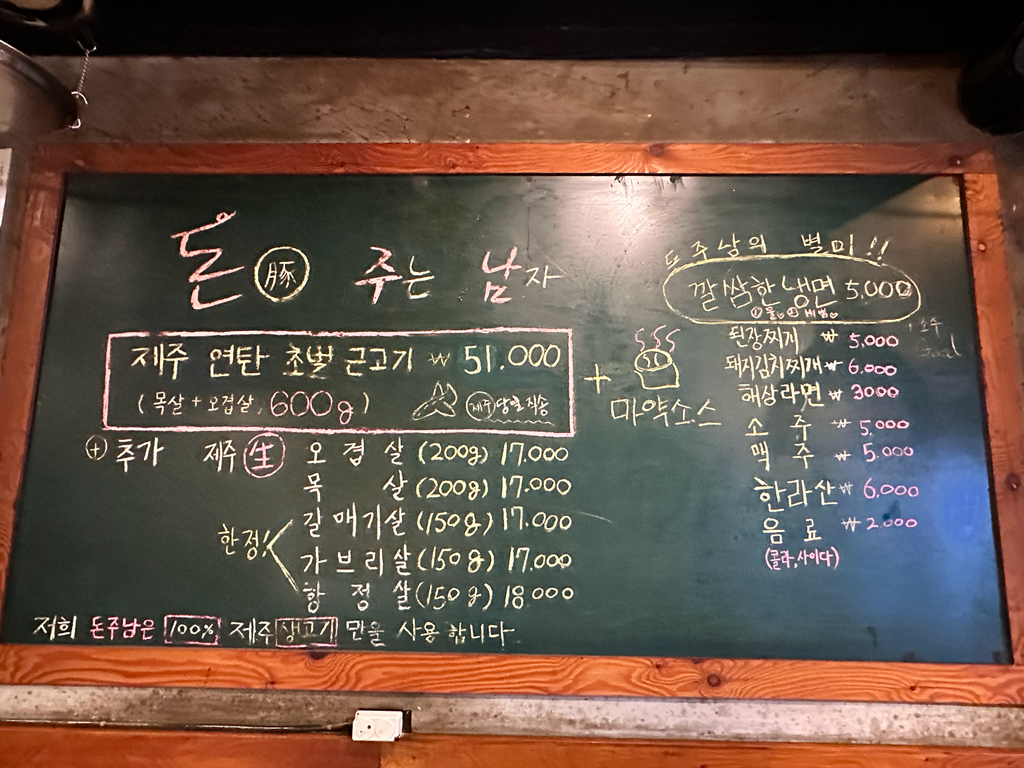 돈 豚 주는 남자
제주 연탄 초벌 근고기 ₩ 51.000
(목살 + 오겹살, 600g) 제주 당일직송
+ 마약소스
+ 추가 제주 生 오겹살 (200g) 17.000
목살 (200g) 17.000
한정! 갈매기살 (150g) 17.000
가브리살 (150g) 17.000
항정살 (150g) 18.000
저희 돈주남은 100% 제주 생고기 만을 사용합니다
돈주남의 별미!!
깔쌈한 냉면 5,000
① 물 ② 비빔
된장찌개 ₩ 5,000
돼지김치찌개 ₩ 6,000
해상라면 ₩ 3000
소주 ₩ 5.000
맥주 ₩ 5.000
한라산 ₩ 6,000
음료 ₩ 2000
(콜라, 사이다)